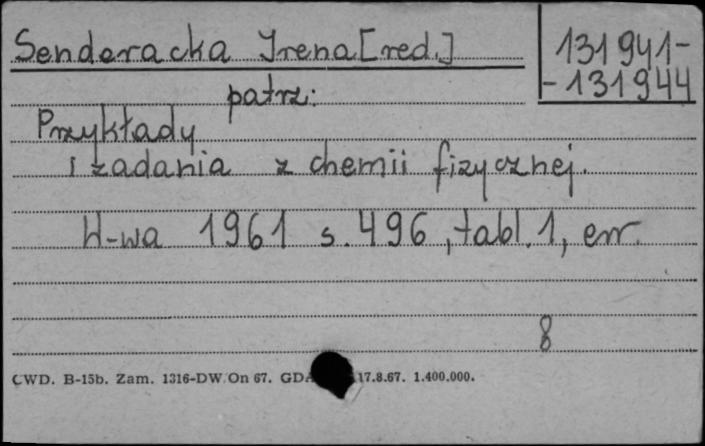 Senderacka Irena [red.]
131941-
-131944
patrz:
Przykłady
i zadania z chemii fizycznej.
W-wa 1961 s. 496, tabl. 1, err.
8
CWD. B-15b. Zam. 1316-DW/On 67. GDA 17.8.67. 1.400.000.